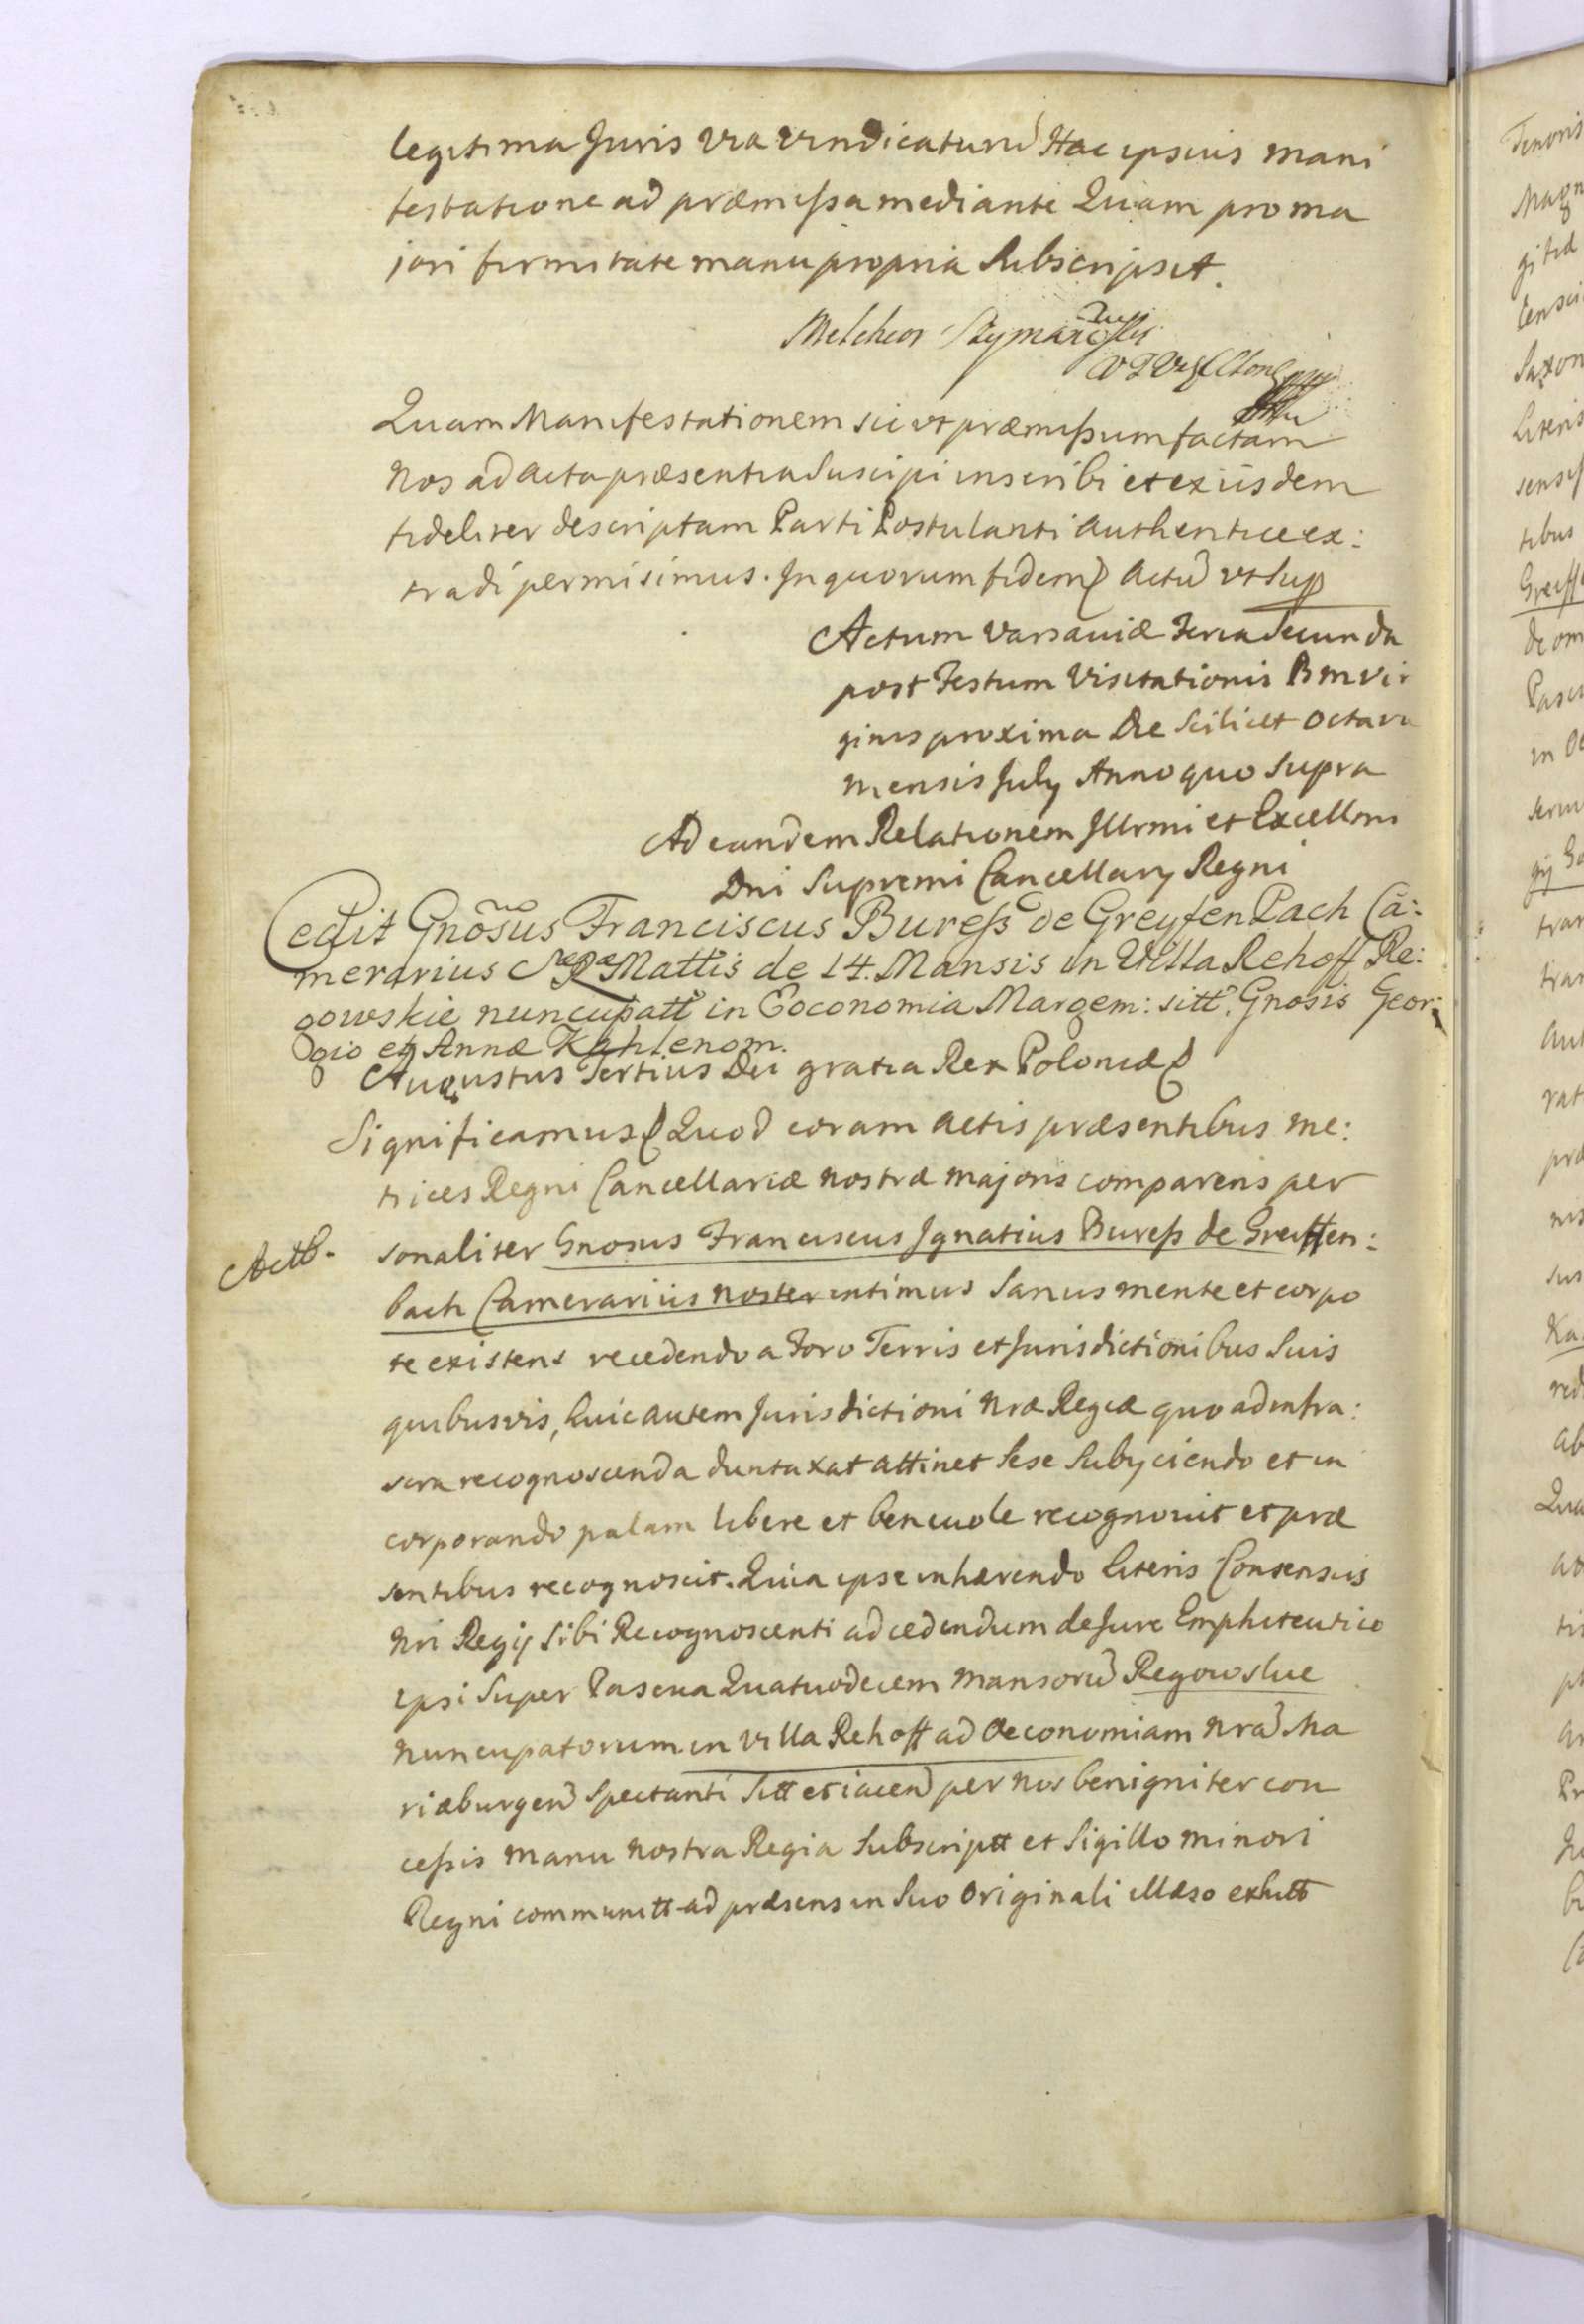 legitima Juris via vindicaturũ Hac ipsius mani
festatione ad præmissa mediante Quam pro ma
jori firmitate manu propria Subscripsit.
Melchior
Quam Manifestationem sic vt præmissum factam
Nos ad Acta præsentia Suscipi inscribi et ex iisdem
fideliter descriptam Parti Postulanti Authentice ex:
tradi permisimus. In quorum fidem Actũ vt Sup
Actum Varsaviæ Feria Secunda
post Festum Visitationis B M Vir
ginis proxima Die Scilicet Octava
mensis July Anno quo Supra
Ad eandem Relationem Illrmi et Excellmi
Dni Supremi Cancellarij Regni
Cedit Gnosus Franciscus Buress de Greyfen Pach Ca:
merarius S R Mattis de 14. Mansis in Villa Rehoff Re:
gowskie nuncupatt in Eoconomia Margem: sitt. Gnosis Geor:
gio et Annæ Kahlenom.
Augustus Tertius Dei gratia Rex Poloniæ
Significamus Quod coram Actis præsentibus me:
trices Regni Cancellariæ nostræ majoris comparens per
Actt. sonaliter Gnosus Franciscus Ignatius Buress de Greiffen:
bach Camerarius noster intimus Sanus mente et corpo
re existens recedendo a Foro Terris et Jurisdictionibus Suis
quibusvis, huic autem Jurisdictioni Nræ Regiæ quo ad infra:
scra recognoscenda duntaxat attinet Sese Subyciendo et in
corporando palam libere et benevole recognovit et præ
sentibus recognoscit. Quia ipse inhærendo literis Consensus
Nri Regij Sibi Recognoscenti ad cedendum de Jure Emphiteutico
ipsi Super Pascua Quatuodecem Mansorũ Regowskie
nuncupatorum in Villa Rehoff ad Oeconomiam Nrã Ma
riæburgeñ Spectanti Sitt et iaceñ per nos benigniter con
cessis manu nostra Regia Subscriptt et Sigillo minori
Regni communitt ad præsens in Suo Originali illæso exhitt